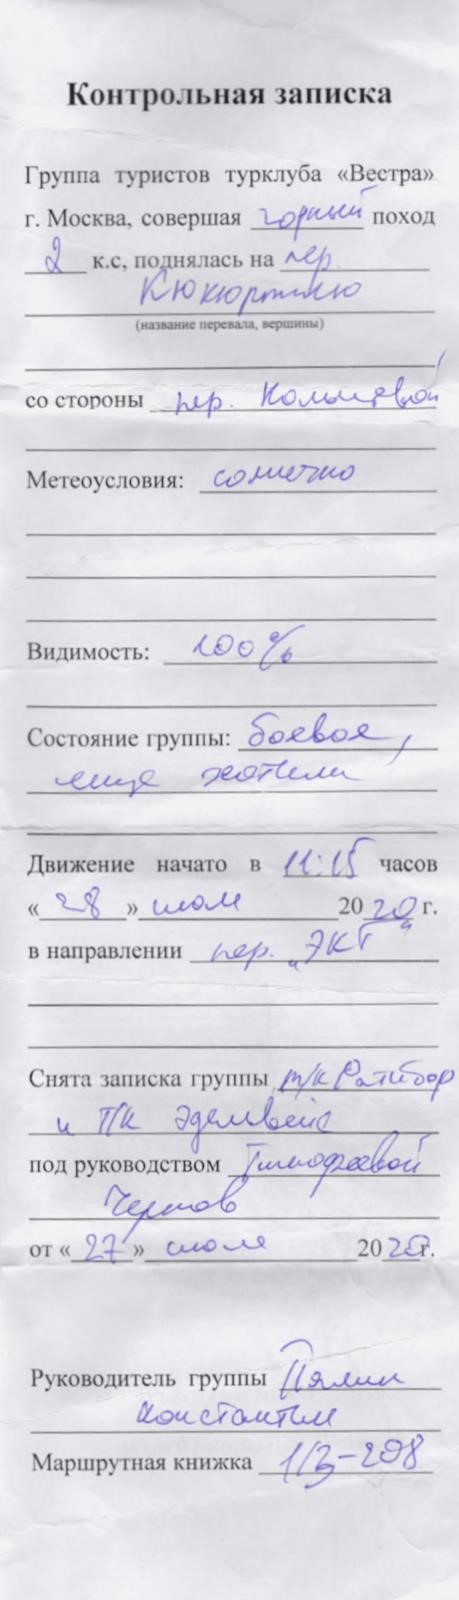 Контрольная записка
Группа туристов турклуба «Вестра»
г. Москва, совершая горный поход
2 к.с, поднялась на пер.
Кюкюртлю
(название перевала, вершины)
со стороны пер. Кольцевой
Метеоусловия: солнечно
Видимость: 100%
Состояние группы: боевое,
еще хотели
Движение начато в 11:15 часов
«28» июля 2020 г.
в направлении пер. "ЭКГ"
Снята записка группы т/к Ратибор
и Т/К Эдельвейс
под руководством Тимофеевой
Чернов
от «27» июля 2020г.
Руководитель группы Пялин
Константин
Маршрутная книжка 1/3-208